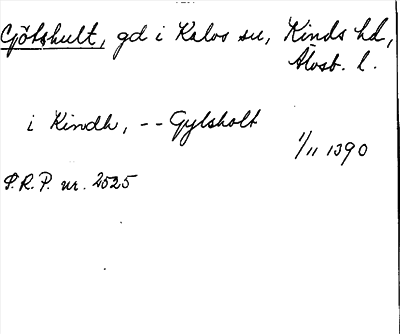 Götshult, gd i Kalvs sn, Kinds hd,
Älvsb. l.
i Kindh, -- Gylsholt
1/11 1390
S.R.P. nr. 2525